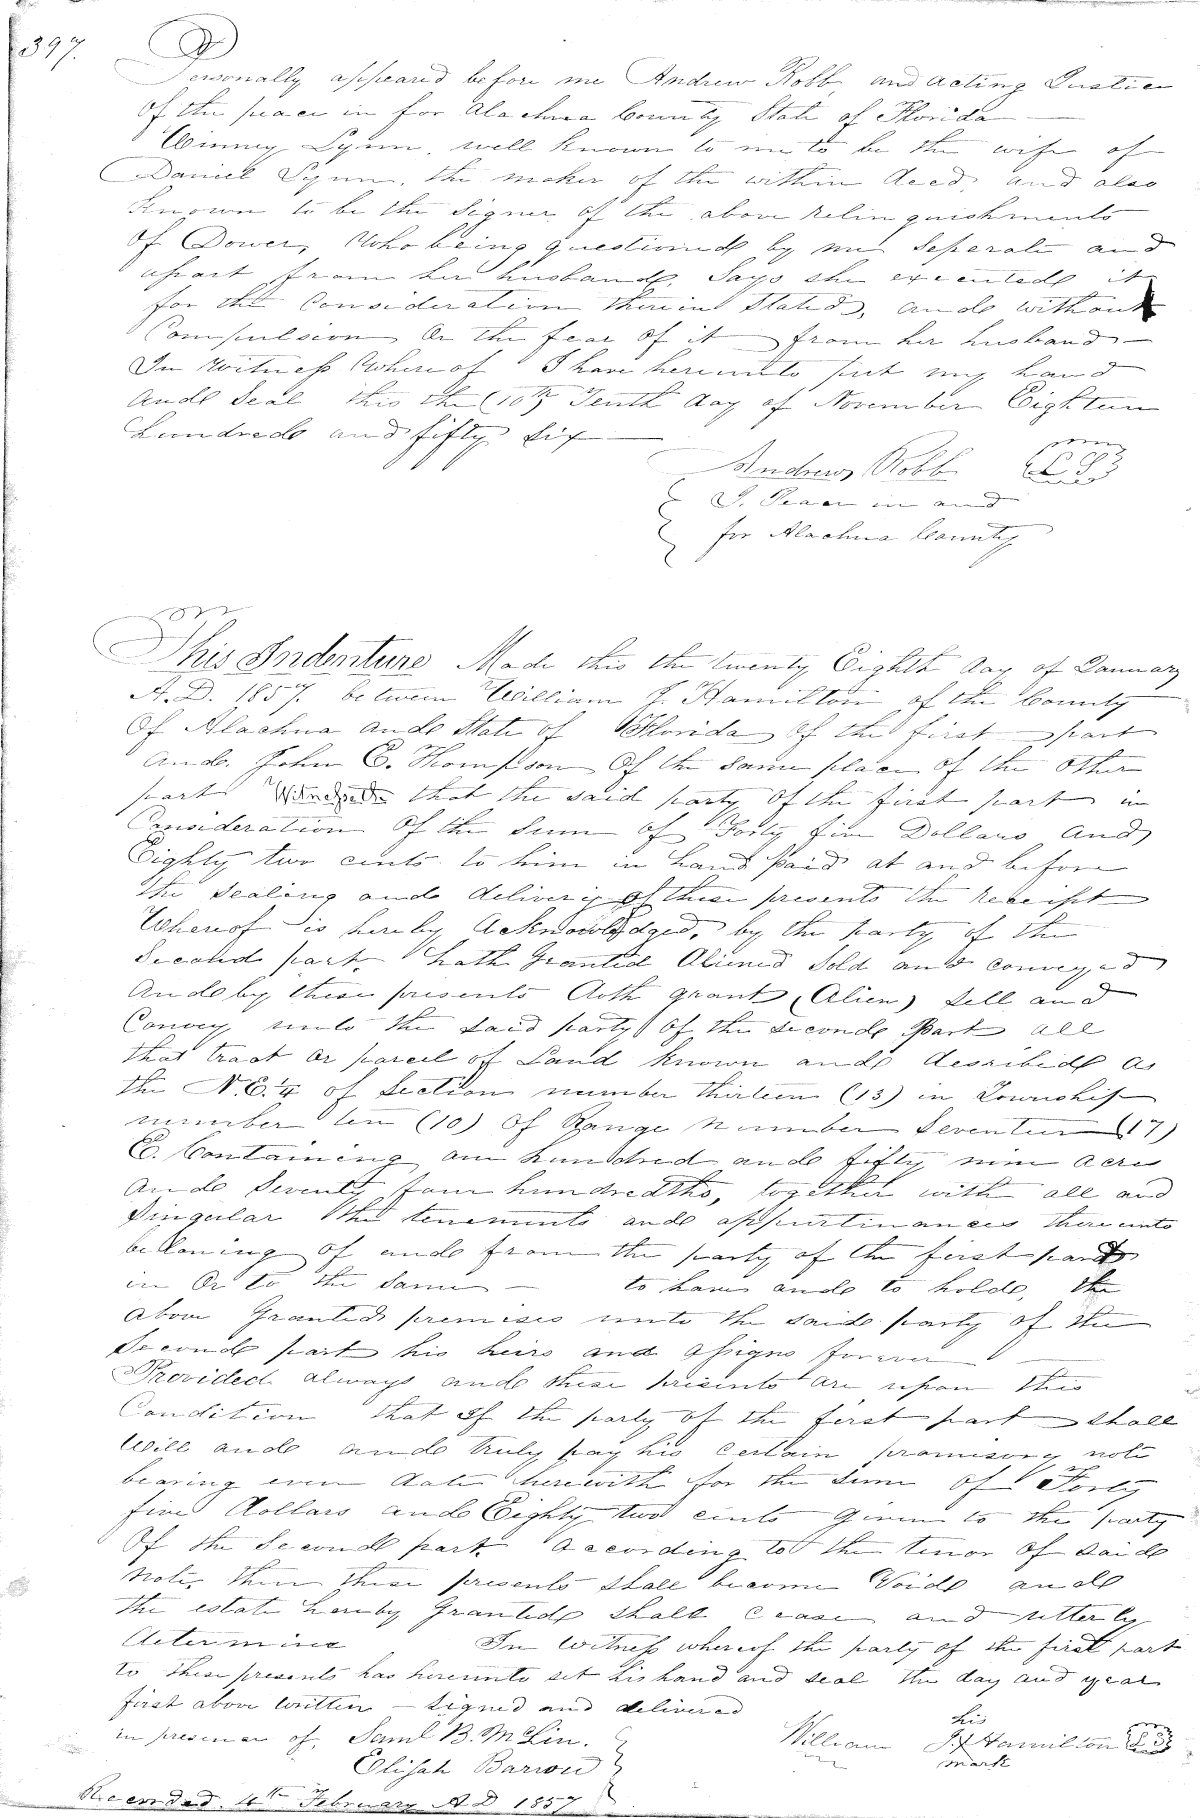 397.
Personally appeared before me Andrew Robb, and acting Justice
Of the peace in for Alachua County State of Florida
Winney Lynn, well known to me to be the wife of
Daniel Lynn, the maker of the within deed, and also
Known to be the Signer of the above relinquishments
Of Dower, Who being questioned by me Seperate and
apart from her husband, Says she executed it
for the Consideration therein Stated, and without
Compulsion Or the fear Of it from her husband
In Witness Whereof I have hereunto put my hand
And Seal this the (10th) Tenth day of November Eighteen
hundred and fifty Six
Andrew Robb L S
J. Peace in and
for Alachua County
This Indenture Made this the twenty Eighth day of January
A. D. 1857. between William J. Hamilton of the County
Of Alachua and State of Florida Of the first part
And John E. Thompson Of the same place of the Other
part that the said party Of the first part in
Consideration Of the Sum of Forty five Dollars And
Eighty two cents to him in hand paid at and before
the Sealing and delivery of these presents the receipt
Whereof is hereby Acknowledged, by the party of the
Second part, hath Granted Aliened Sold and conveyed
And by these presents doth grant, (Alien) Sell and
Convey unto the Said party Of the Second Part all
that tract or parcel of Land known and described as
the N.E.¼ of Section number thirteen (13) in Township
number ten (10) Of Range Number Seventeen (17)
E. Containing one hundred and fifty nine acres
and Seventy four hundredths, together with all and
Singular the tenements and appurtinances thereunto
belloning Of and from the party of the first part
in Or to the Same — to have and to hold, the
above Granted premises unto the said party of the
Second part his heirs and Assigns forever
Provided always and these presents are upon this
Condition that if the party of the first part shall
Will and and truly pay his certain promisory note
bearing even date herewith for the Sum Of Forty
five Dollars and Eighty two cents given to the party
Of the Second part, according to the tenor Of said
Note, then these presents shall become Void and
the estate hereby Granted shall cease and utterly
determine In Witness whereof the party of the first part
to these presents has hereunto set his hand and seal the day and year
first above Written — Signed and delivered
in presence of, Saml B. McLin.
Elisah Barrow
his
William J. X Hamilton L S
mark
Recorded. 4th February A D 1857